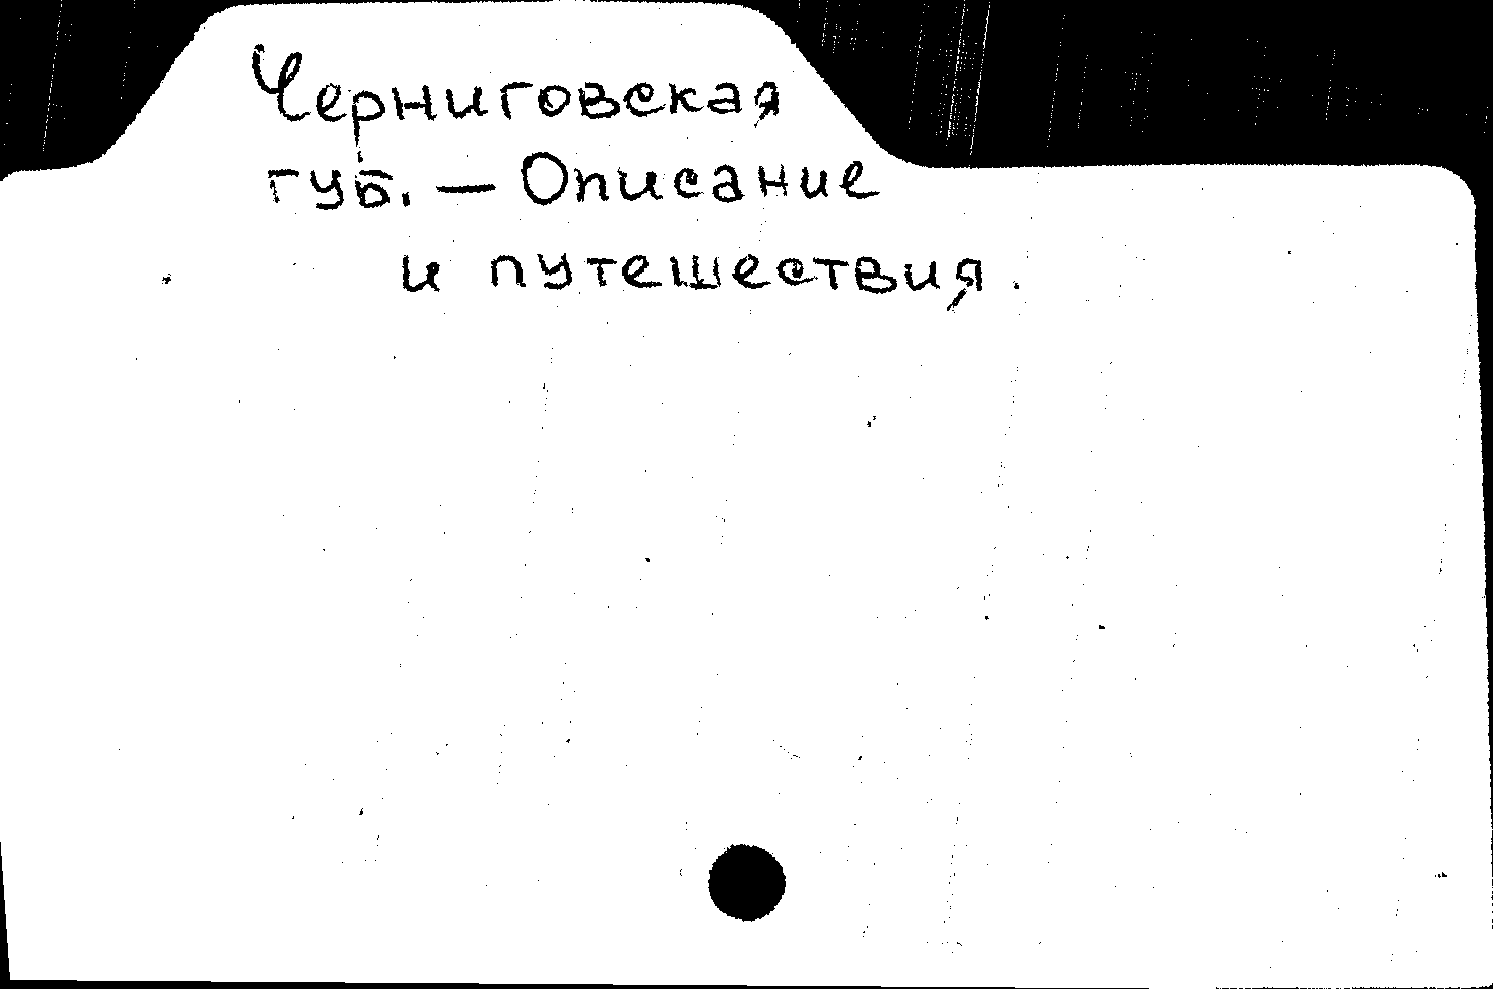 Черниговская
губ. — Описание
и путешествия.